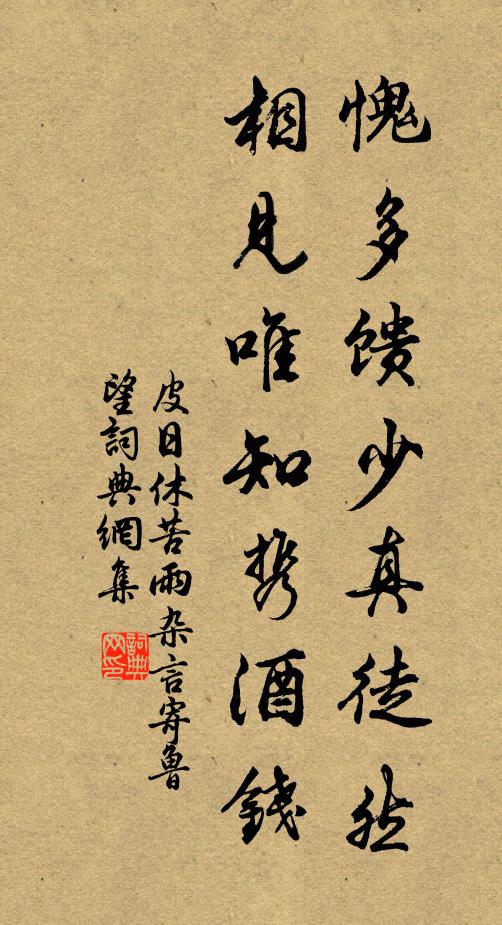 愧多馈少真徒然
相見唯知携酒錢
皮日休苦雨杂言寄魯
望詞典網集
詞典网印